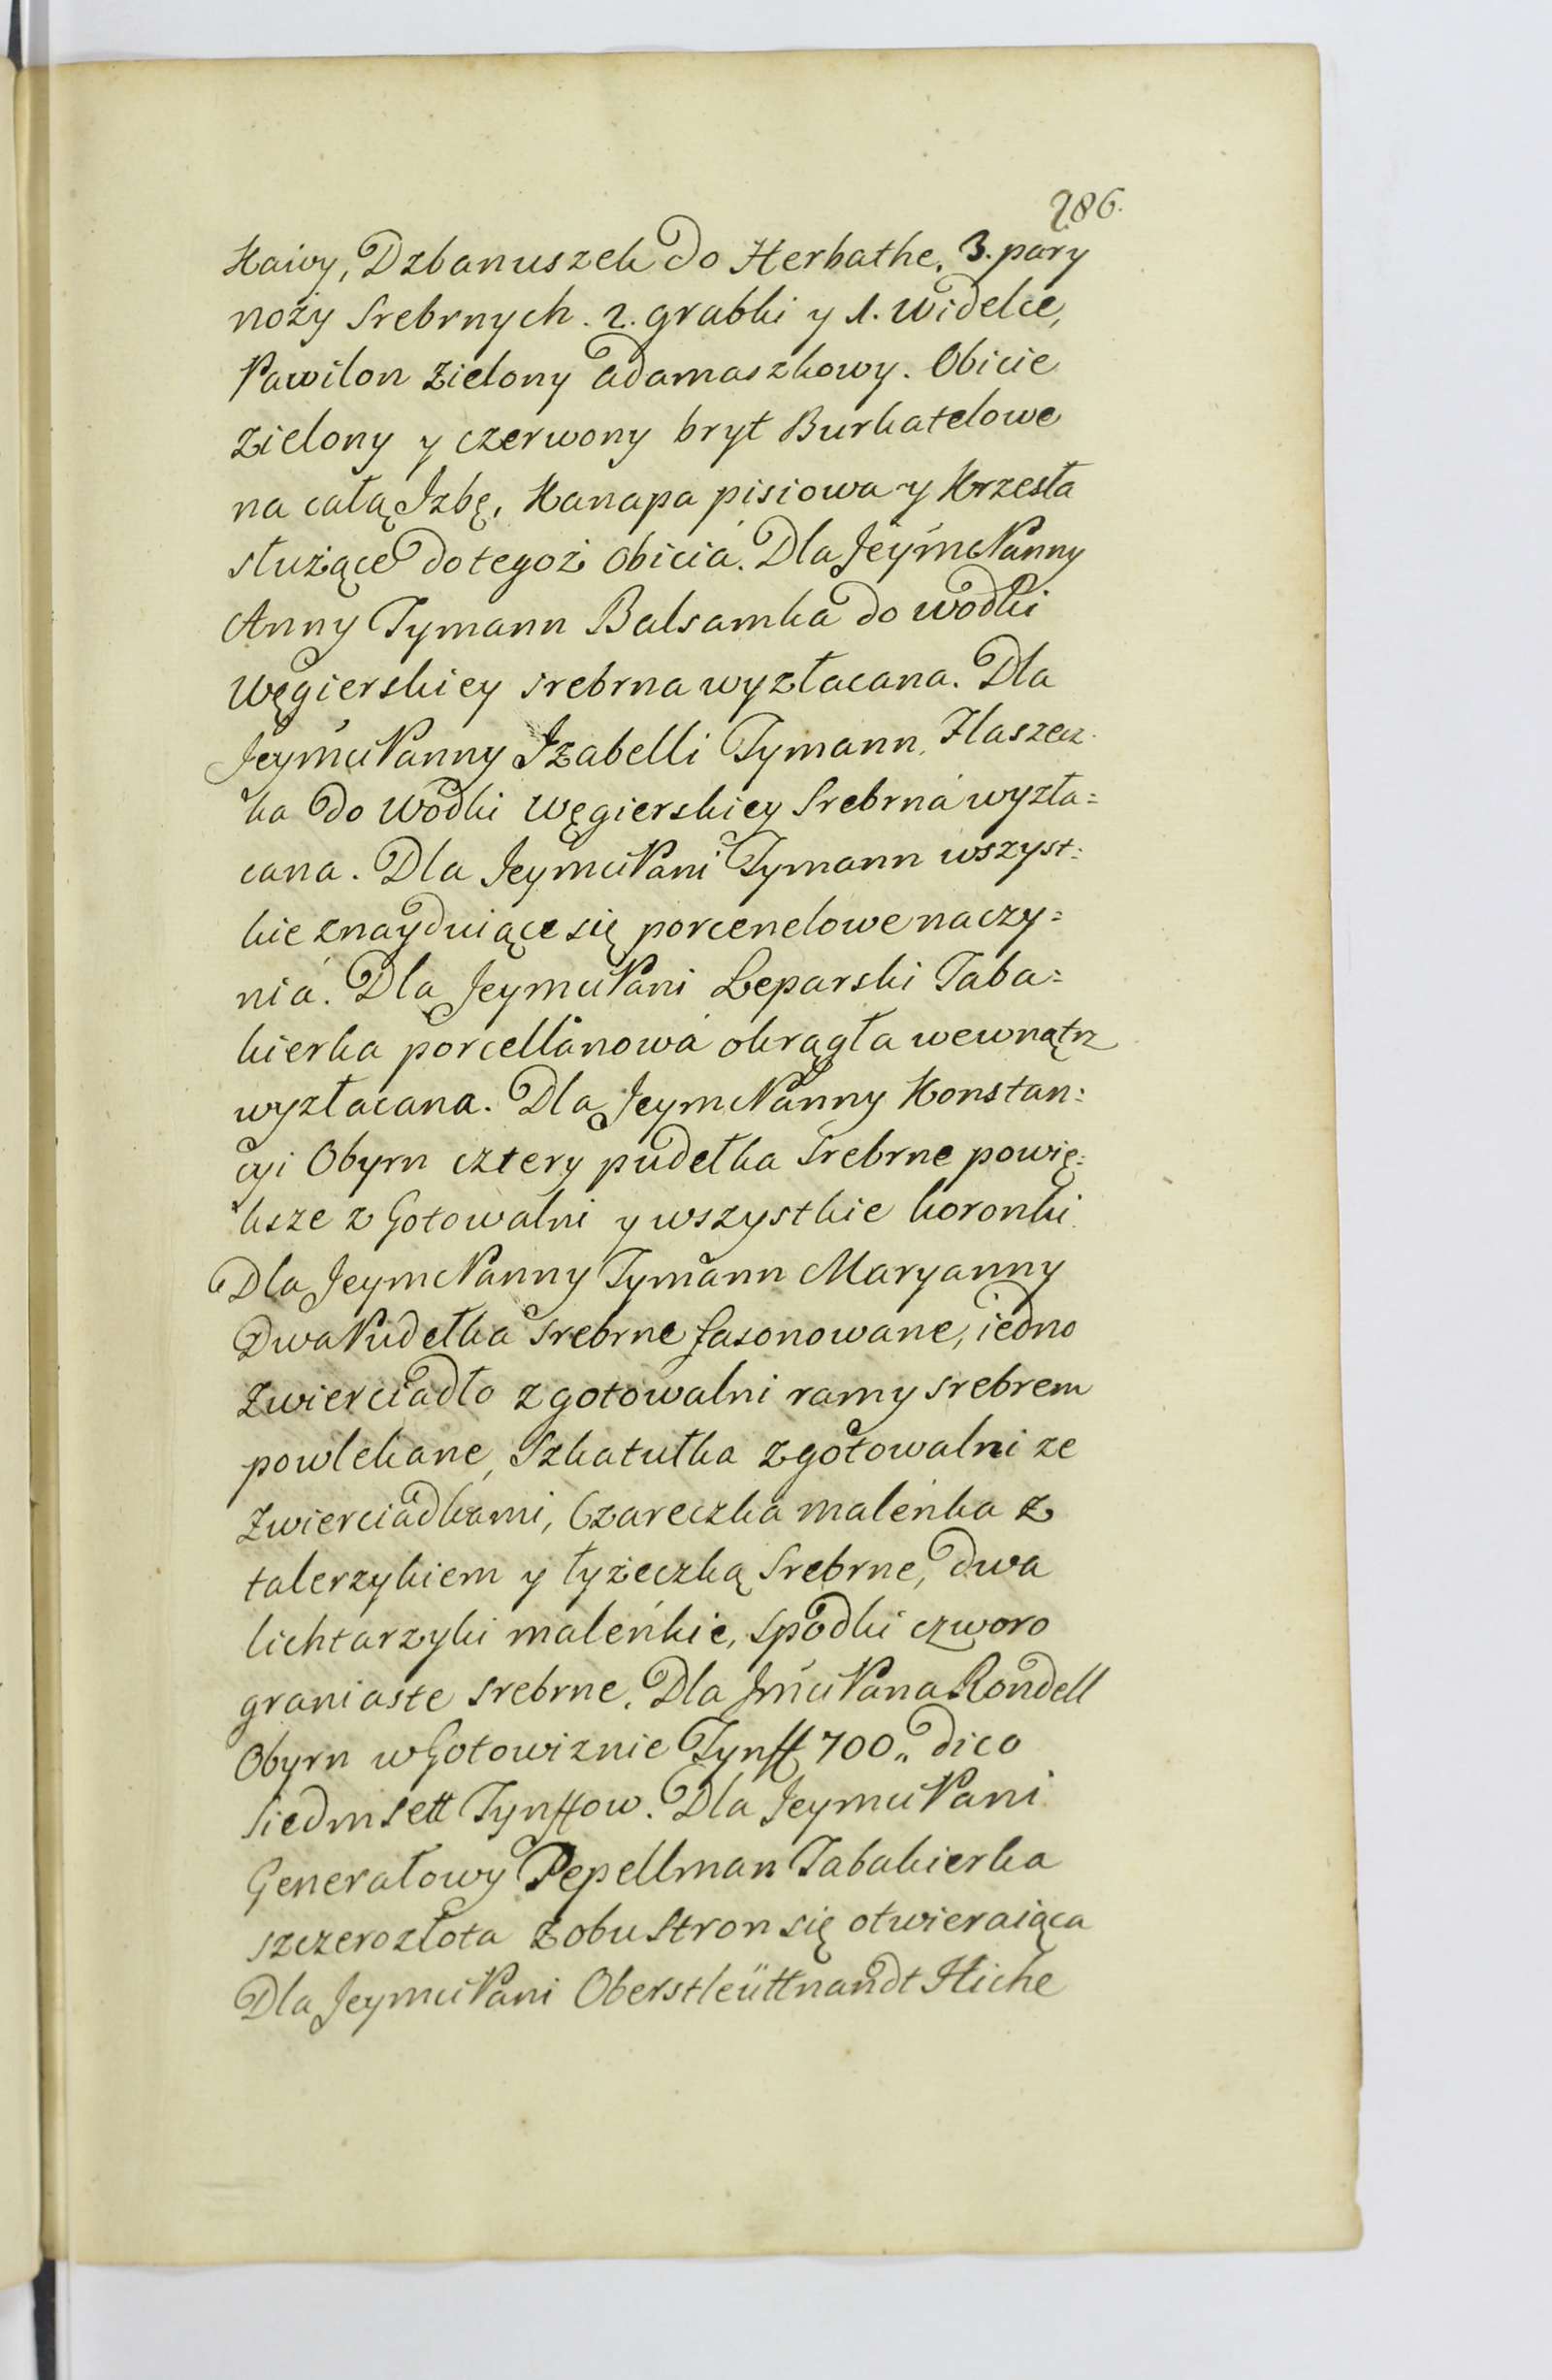 286.
Kawy, Dzbanuszek do Herbathe. 3. pary
noży Srebrnych. 2. grabki y 1. widelce,
Pawilon zielony adamaszkowy. Obicie
zielony y czerwony bryt Burkatelowe
na całą Izbę, Kanapa pisiowa y Krzesła
służące do tegoż obicia. Dla Jeymć Panny
Anny Tymann Balsamka do wodki
węgierskiey srebrna wyzłacana. Dla
Jeymći Panny Izabelli Tymann, Flaszecz-
ka do wodki węgierskiey Srebrna wyzła=
cana. Dla Jeymci Pani Tymann wszyst=
kie znayduiące się porcenelowe naczy=
nia. Dla Jeymci Pani Leparski Taba=
kierka porcellanowa okrągła wewnątrz
wyzłacana. Dla Jeymc Panny Konstan=
cyi Obyrn cztery pudełka Srebrne powię=
ksze z Gotowalni y wszystkie koronki.
Dla Jeymc Panny Tymann Maryanny
Dwa Pudełka srebrne fasonowane, iedno
zwierciadło z gotowalni ramy srebrem
powlekane, Szkatułka z gotowalni ze
zwierciadkami, Czareczka maleńka z
talerzykiem y łyżeczką Srebrne, dwa
lichtarzyki maleńkie, spodki czworo
graniaste srebrne. Dla Jmći Pana Rondell
Obyrn w Gotowiznie Tynff 700„ dico
siedmsett Tynffow. Dla Jeymci Pani
Generałowy Pepellman Tabakierka
szczerozłota z obu Stron się otwieraiąca
Dla Jeymci Pani Oberstleüttnandt Hicke